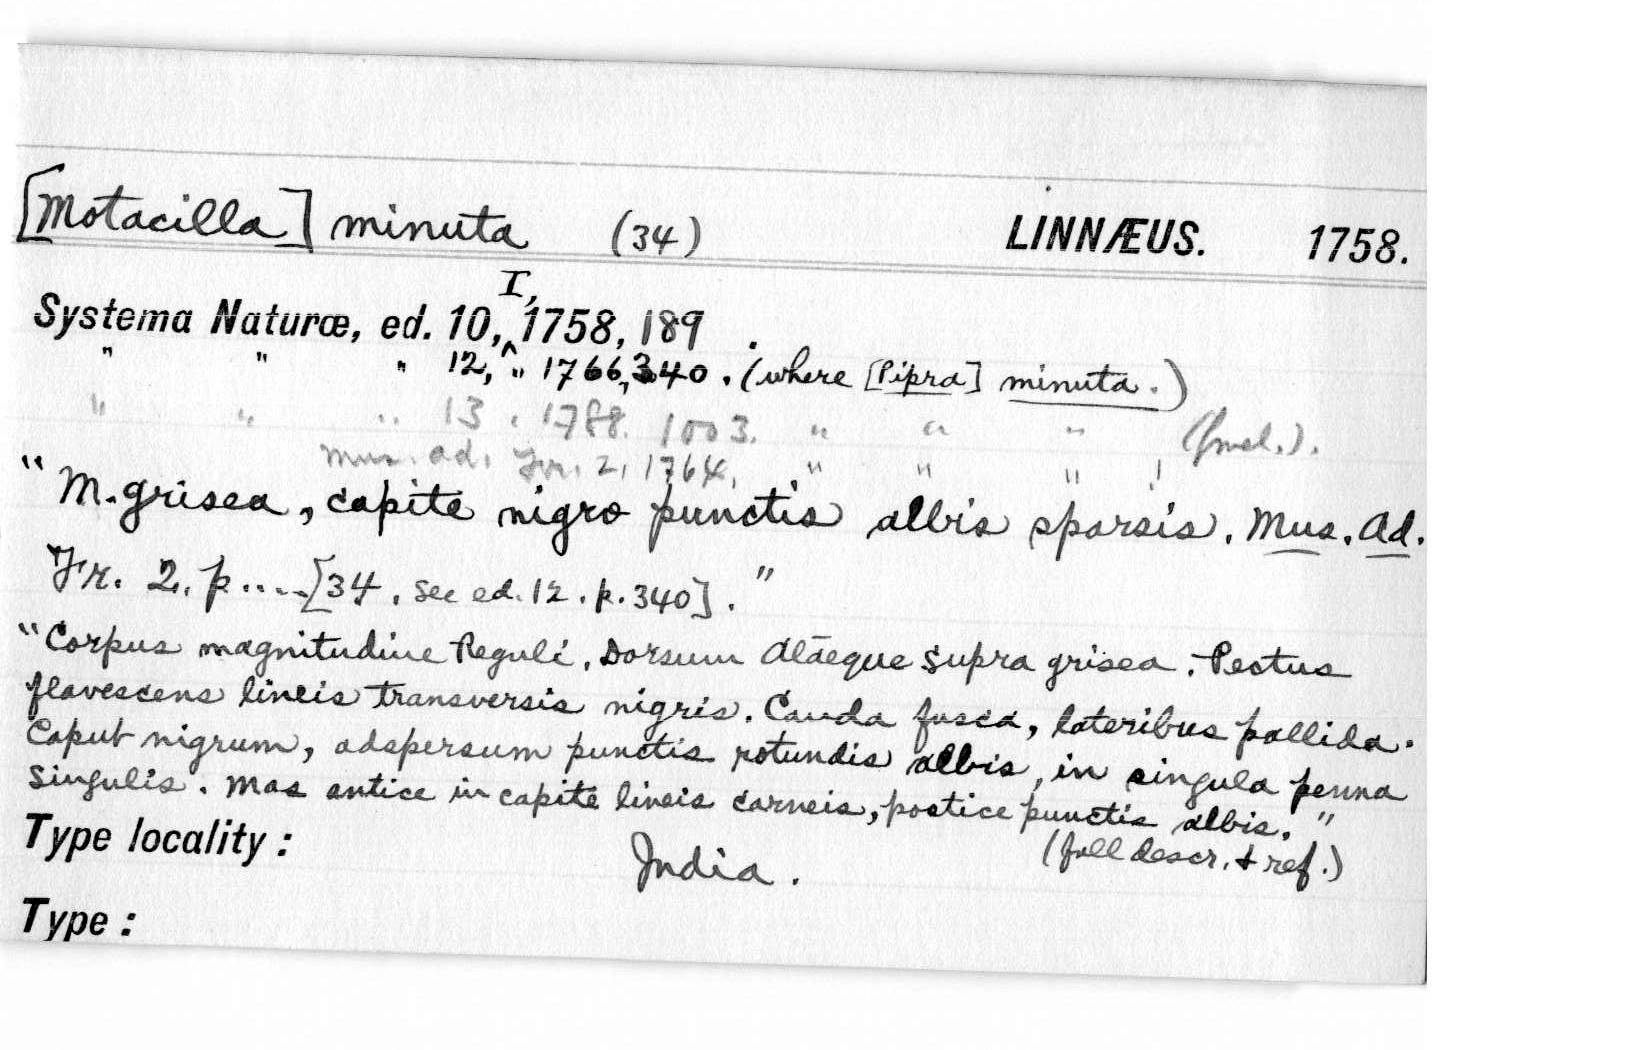 [Motacilla] minuta (34) LINNÆUS. 1758.
Systema Naturæ, ed. 10, I, 1758, 189 .
" " " 12, " 1766, 340. (where [Pipra] minuta.)
" " " 13 . 1788. 1003. " " " (Gmel.).
Mus. Ad. Fr. 2, 1764, " " " !
"M. grisea, capite nigro punctis albis sparsis. Mus. Ad.
Fr. 2. p....[34. see ed. 12. p. 340]."
"Corpus magnitudine Reguli. Dorsum Alaeque supra grisea. Pectus
flavescens lineis transversis nigris. Cauda fusca, lateribus pallida.
Caput nigrum, adspersum punctis rotundis albis, in singula penna
singulis. Mas antice in capite lineis carneis, postice punctis albis."
(full descr. & ref.)
Type locality: India.
Type: